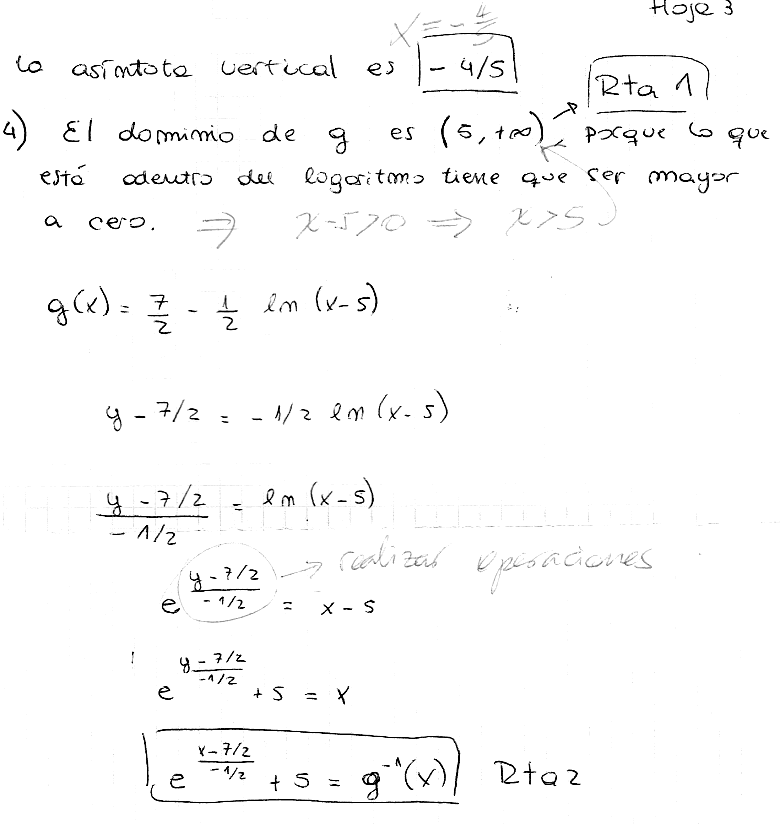 Hoja 3
x = - 4/5
la asíntota vertical es - 4/5
Rta 1
4) El dominio de g es (5, +∞) porque lo que
está adentro del logaritmo tiene que ser mayor
a cero. ⇒ x-5>0 ⇒ x>5
g(x) = 7/2 - 1/2 ln (x-5)
y - 7/2 = - 1/2 ln (x-5)
(y - 7/2)/(- 1/2) = ln (x-5)
→ realizar operaciones
e^((y-7/2)/(-1/2)) = x-5
e^((y-7/2)/(-1/2)) + 5 = x
e^((x-7/2)/(-1/2)) + 5 = g⁻¹(x) Rta 2